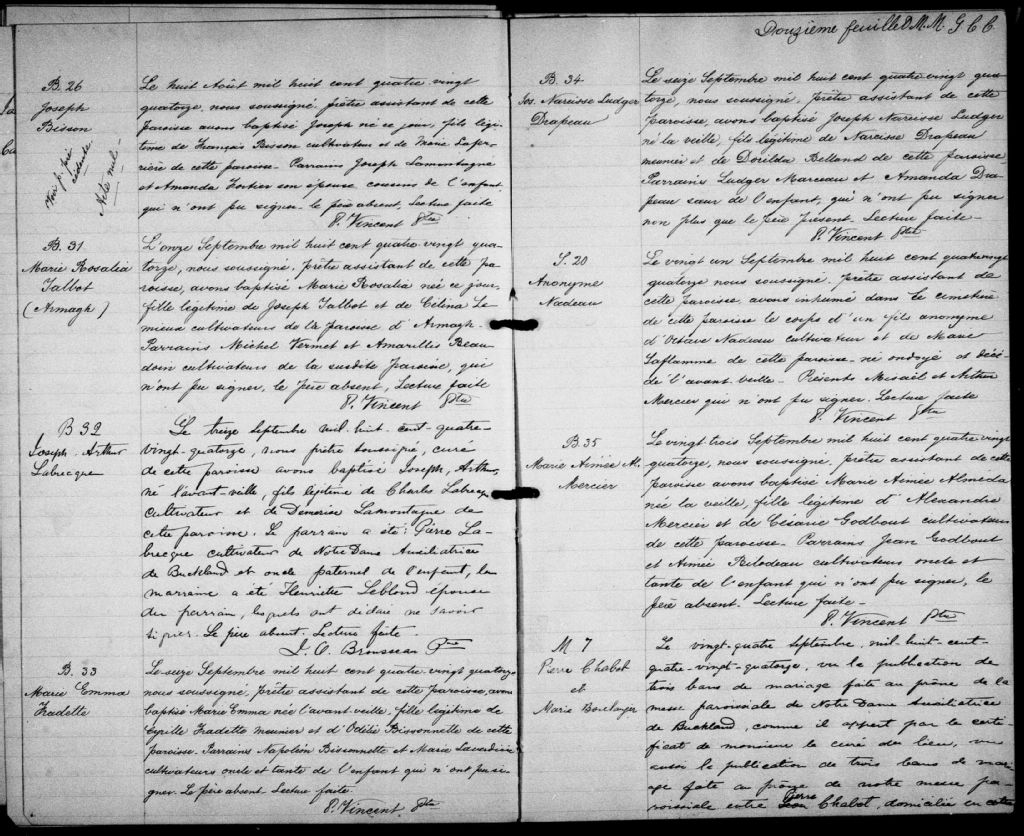 B. 26
Joseph
Bisson
Voir p. pré
cédente
Acte nul
Le huit Août mil huit cent quatre vingt
quatorze, nous soussigné, prêtre assistant de cette
paroisse avons baptisé Joseph né ce jour, fils légi
time de François Bisson cultivateur et de Marie Lapr
rière de cette paroisse. Parrains Joseph Lamontagne
et Amanda Fortier son épouse cousins de l'enfant
qui n'ont pu signer. le père absent, Lecture faite
P. Vincent Ptre
B. 31
Marie Rosalia
Talbot
(Armagh)
L'onze Septembre mil huit cent quatre vingt qua
torze, nous soussigné, prêtre assistant de cette pa
roisse, avons baptisé Marie Rosalia née ce jour,
fille légitime de Joseph Talbot et de Célina Le
mieux cultivateurs de la paroisse d'Armagh.
Parrains Michel Vermet et Amarilles Beau
doin cultivateurs de la susdite paroisse, qui
n'ont pu signer, le père absent, Lecture faite
P. Vincent Ptre
B 32
Joseph. Arthur
Labrecque
Le treize septembre mil huit-cent-quatre-
vingt-quatorze, nous prêtre soussigné, curé
de cette paroisse avons baptisé Joseph, Arthur,
né l'avant-veille, fils légitime de Charles Labrecque
cultivateur et de Démerise Lamontagne de
cette paroisse. Le parrain a été: Pierre La-
brecque cultivateur de Notre Dame Auxiliatrice
de Buckland et oncle paternel de l'enfant, la
marraine a été Henriette Leblond épouse
du parrain, lesquels ont déclaré ne savoir
signer. Le père absent. Lecture faite.
J. O. Brousseau Ptre
B. 33
Marie Emma
Fradette
Le seize Septembre mil huit cent quatre vingt quatorze
nous soussigné, prêtre assistant de cette paroisse, avons
baptisé Marie Emma née l'avant veille, fille légitime de
Cyrille Fradette meunier et d'Odélie Bissonnette de cette
paroisse. Parrains Napoléon Bissonnette et Marie Laverdière
cultivateurs oncle et tante de l'enfant qui n'ont pu si-
gner. Le père absent Lecture faite
P. Vincent. Ptre
Douzième feuille D. M. M. G C C.
B. 34
Jos. Narcisse Ludger
Drapeau
Le seize Septembre mil huit cent quatre vingt qua
torze, nous soussigné, prêtre assistant de cette
paroisse, avons baptisé Joseph Narcisse Ludger
né la veille, fils légitime de Narcisse Drapeau
meunier et de Dorilda Belland de cette paroisse
Parrains Ludger Marceau et Amanda Dra
peau sœur de l'enfant, qui n'ont pu signer
non plus que le père présent. Lecture faite-
P. Vincent Ptre
S. 20
Anonyme
Nadeau
Le vingt un Septembre mil huit cent quatre vingt
quatorze nous soussigné, prêtre assistant de
cette paroisse, avons inhumé dans le cimetière
de cette paroisse le corps d'un fils anonyme
d'Octave Nadeau cultivateur et de Marie
Laflamme de cette paroisse. né ondoyé et décé-
dé l'avant veille - Présents Misaël et Arthur
Mercier qui n'ont pu signer. Lecture faite
P. Vincent Ptre
B. 35
Marie Aimée A.
Mercier
Le vingt trois Septembre mil huit cent quatre vingt
quatorze, nous soussigné, prêtre assistant de cette
paroisse avons baptisé Marie Aimée Alméda
née la veille, fille légitime d'Alexandre
Mercier et de Césarie Godbout cultivateurs
de cette paroisse. Parrains Jean Godbout
et Aimée Bilodeau cultivateurs oncle et
tante de l'enfant qui n'ont pu signer, le
père absent. Lecture faite-
P. Vincent Ptre
M 7
Pierre Chabot
et
Marie Boulanger
Le vingt-quatre septembre, mil-huit-cent-
quatre-vingt-quatorze, vu la publication de
trois bans de mariage faite au prône de la
messe paroissiale de Notre Dame Auxiliatrice
de Buckland, comme il appert par le certi-
ficat de monsieur le curé du lieu, vu
aussi la publication de trois bans de mari-
age faite au prône de notre messe pa-
roissiale entre Pierre Chabot, domicilié en cette